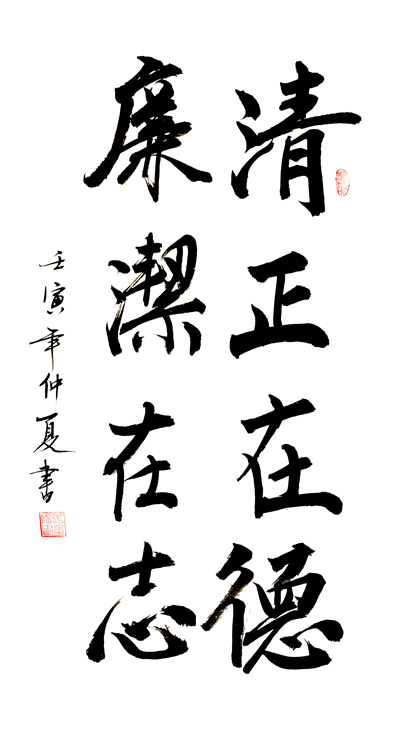 清正在德
廉潔在志
壬寅年仲夏書